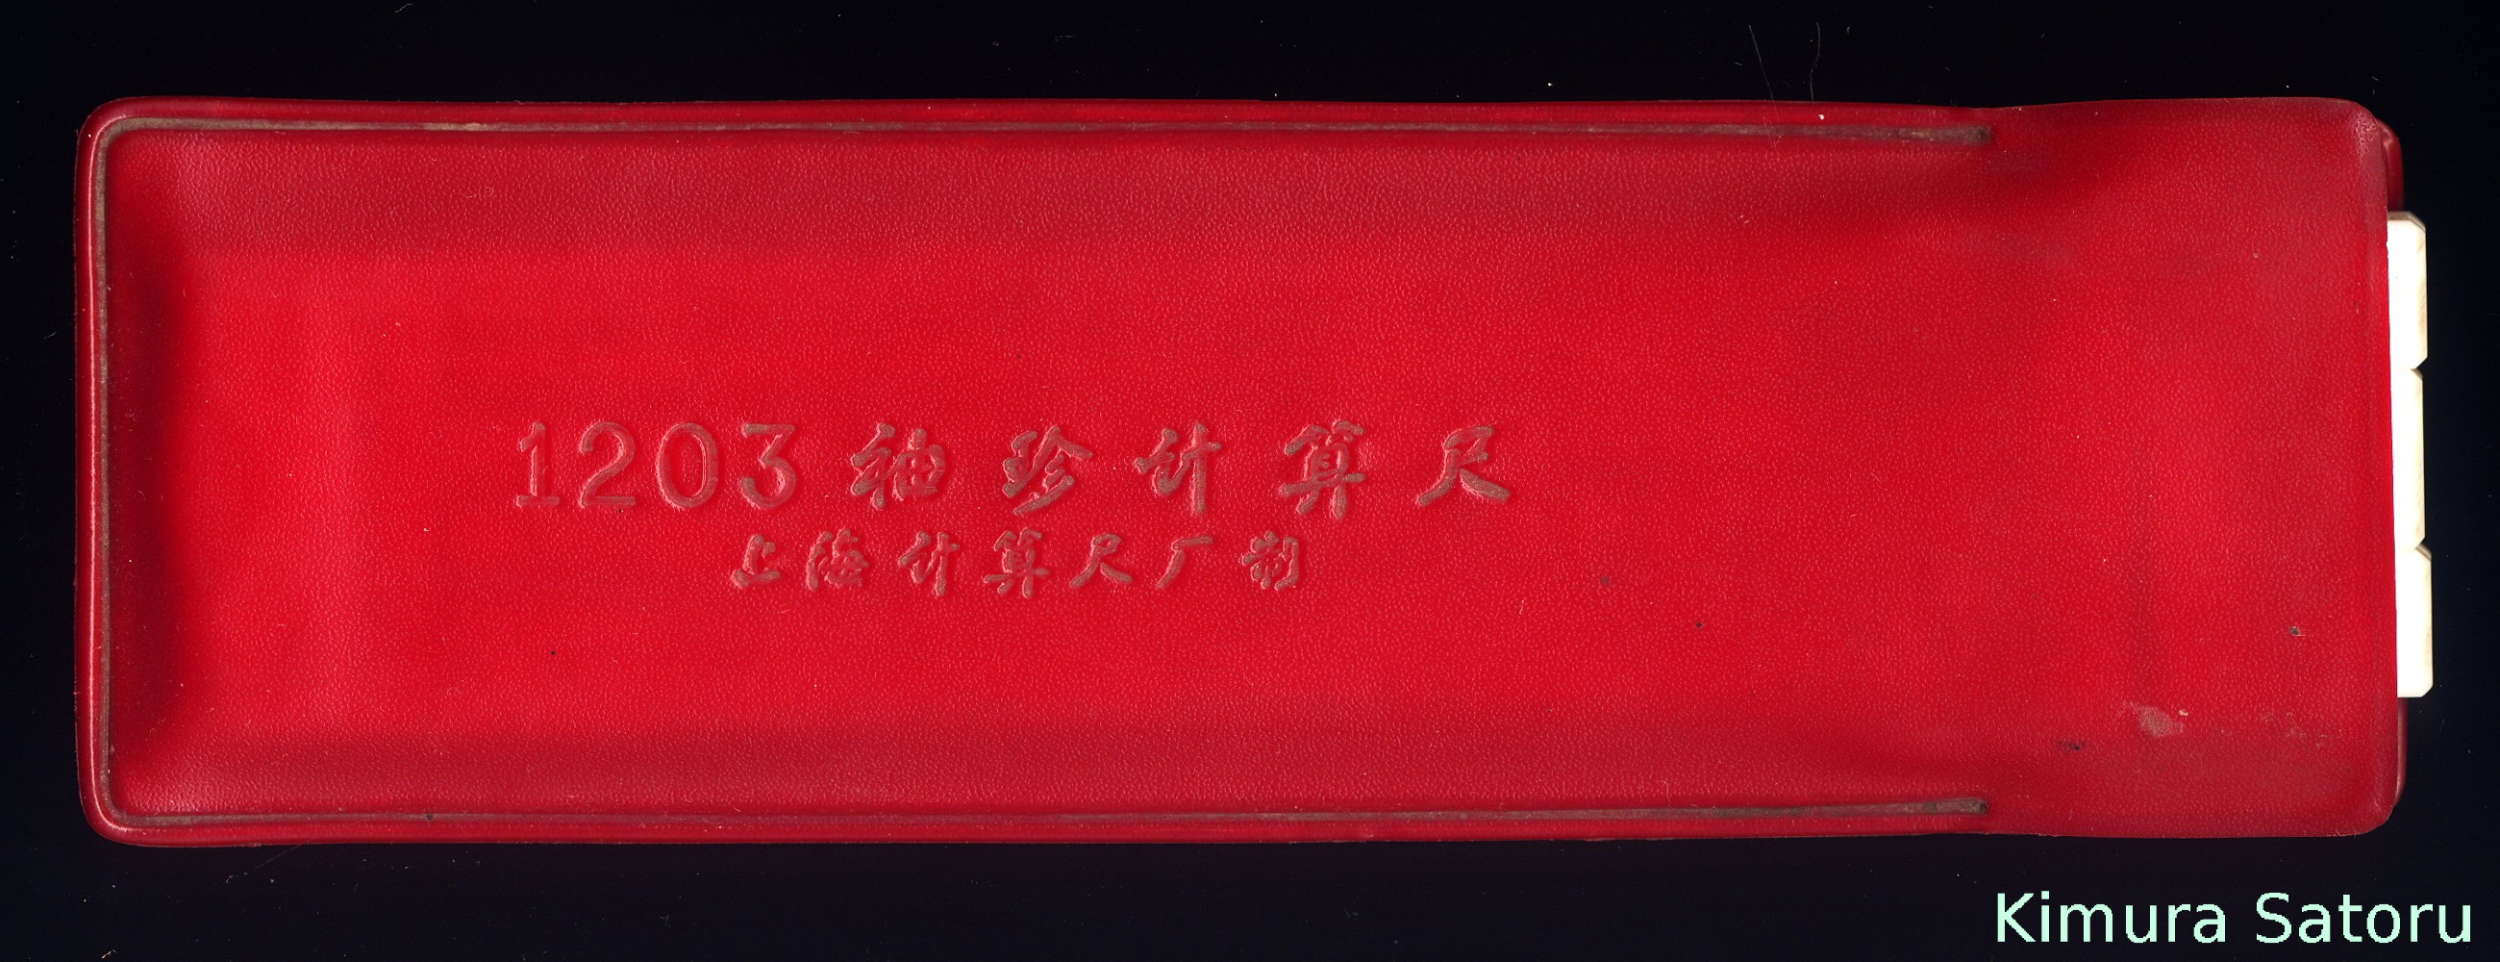 1203 袖珍计算尺
上海计算尺厂制
Kimura Satoru